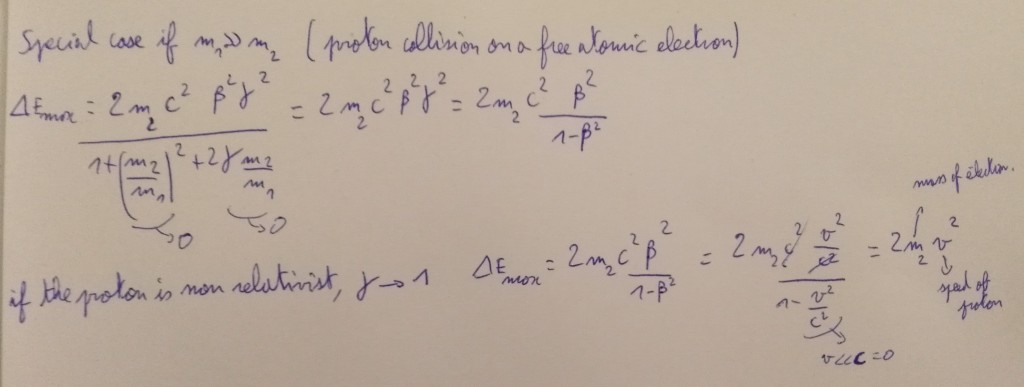 Special case if m₁ >> m₂ (proton collision on a free atomic electron)
ΔEmax = 2m₂c² β²γ² / (1 + (m₂/m₁)² + 2γ m₂/m₁) = 2m₂c²β²γ² = 2m₂c² β²/(1-β²)
→ 0 → 0
mass of électron.
if the proton is non relativist, γ → 1 ΔEmax = 2m₂c²β²/(1-β²) = 2m₂c² (v²/c²) / (1 - v²/c²) = 2m₂v²
speed of
proton
v<<c = 0